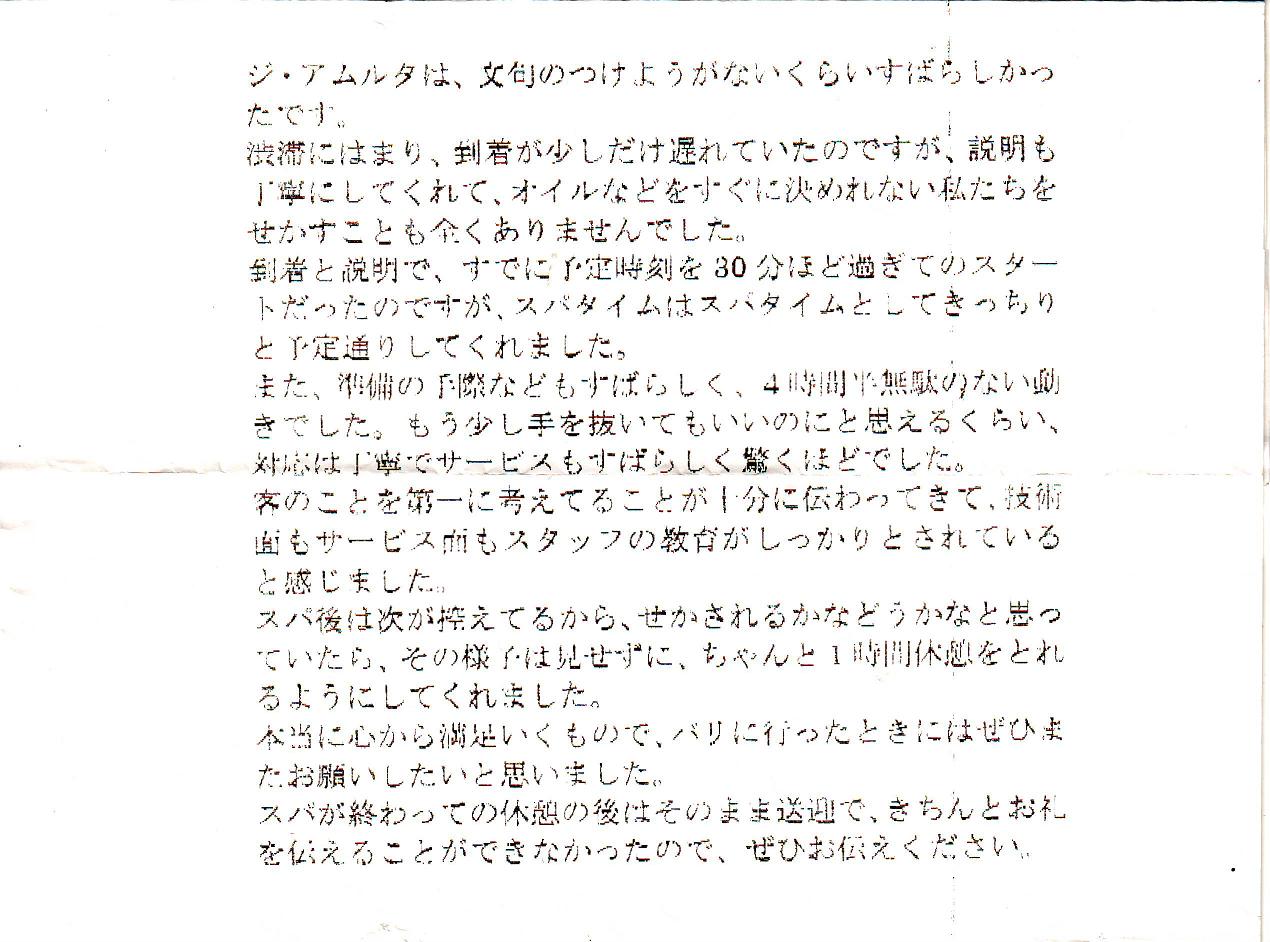 ジ・アムルタは、文句のつけようがないくらいすばらしかっ
たです。
渋滞にはまり、到着が少しだけ遅れていたのですが、説明も
丁寧にしてくれて、オイルなどをすぐに決めれない私たちを
せかすことも全くありませんでした。
到着と説明で、すでに予定時刻を30分ほど過ぎてのスター
トだったのですが、スパタイムはスパタイムとしてきっちり
と予定通りしてくれました。
また、準備の手際などもすばらしく、4時間半無駄のない動
きでした。もう少し手を抜いてもいいのにと思えるくらい、
対応は丁寧でサービスもすばらしく驚くほどでした。
客のことを第一に考えてることが十分に伝わってきて、技術
面もサービス面もスタッフの教育がしっかりとされている
と感じました。
スパ後は次が控えてるから、せかされるかなどうかなと思っ
ていたら、その様子は見せずに、ちゃんと1時間休憩をとれ
るようにしてくれました。
本当に心から満足いくもので、バリに行ったときにはぜひま
たお願いしたいと思いました。
スパが終わっての休憩の後はそのまま送迎で、きちんとお礼
を伝えることができなかったので、ぜひお伝えください。